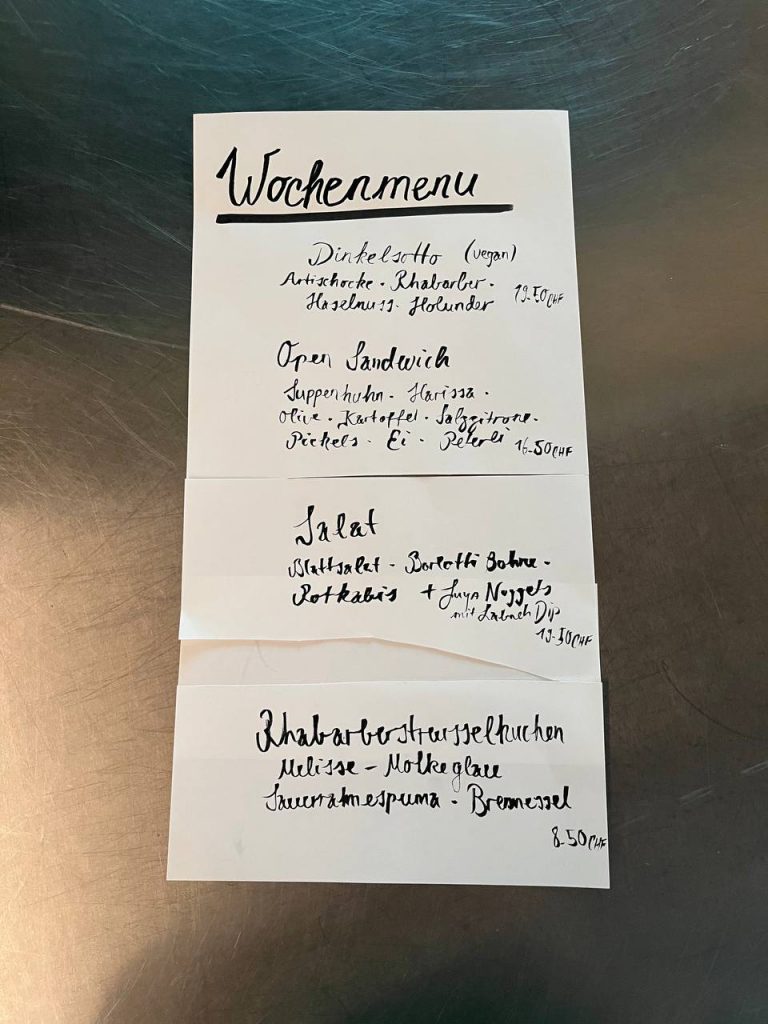 Wochenmenu
Dinkelsotto (vegan)
Artischocke. Rhabarber.
Haselnuss. Holunder 19.50 CHF
Open Sandwich
Suppenhuhn. Harissa.
Olive. Kartoffel. Salzzitrone.
Pickels. Ei. Peterli 16.50 CHF
Salat
Blattsalat - Borlotti Bohne.
Rotkabis + Nuggets
mit Labneh Dip
19.50 CHF
Rhabarberstreusselkuchen
Melisse - Molkeglace
Sauerrahmespuma. Brennessel
8.50 CHF